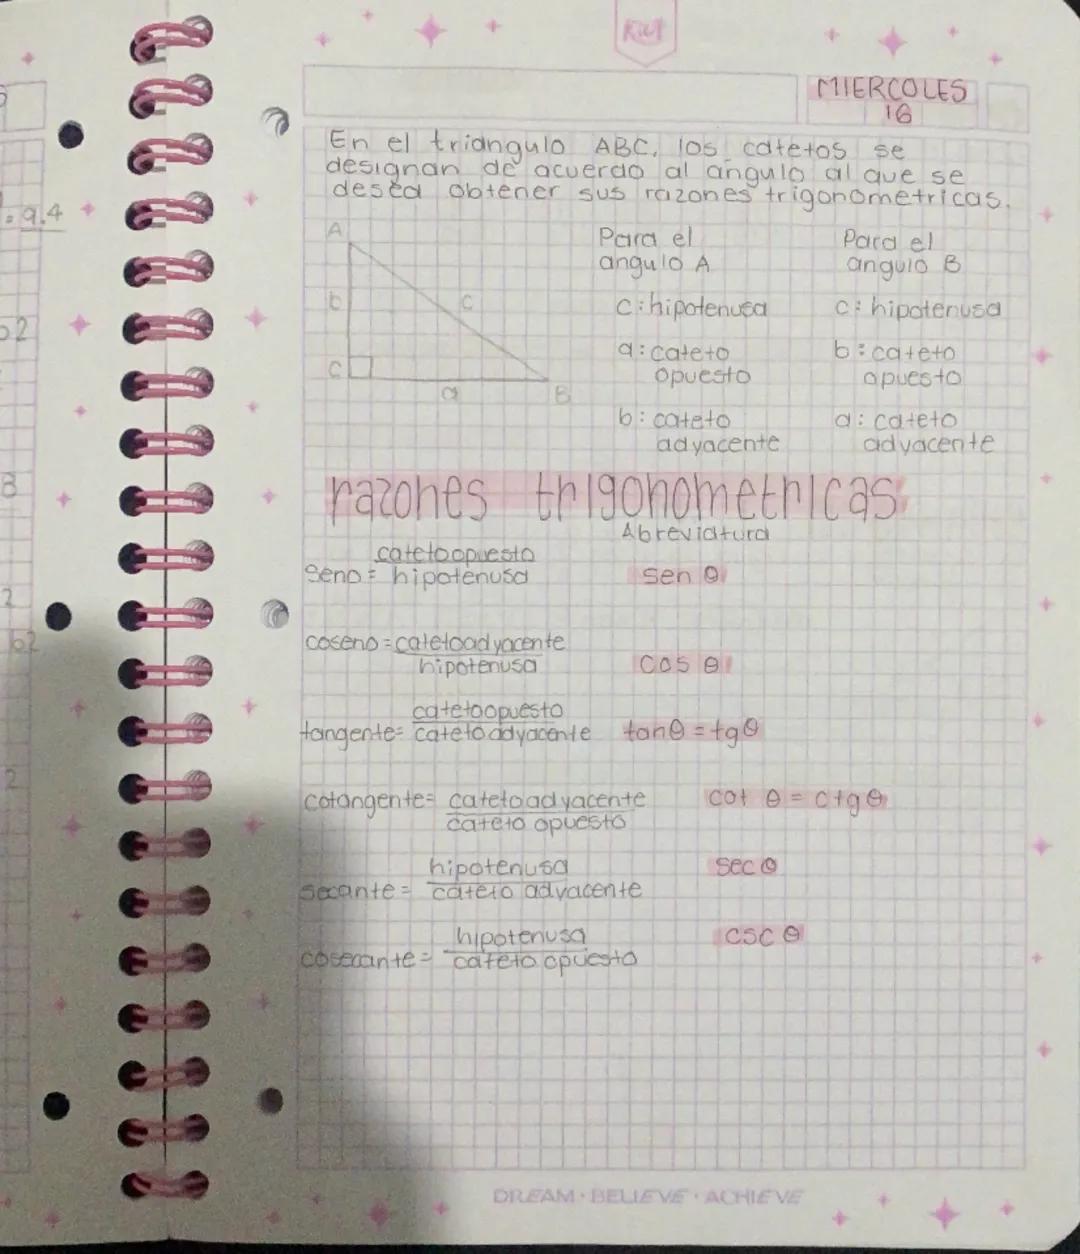 Kiut
MIERCOLES
16
En el triangulo ABC, los catetos se
designan de acuerdo al angulo al que se
desea obtener sus razones trigonometricas.
= 9.4
A
b
c
C
a
B
Para el
angulo A
c: hipotenusa
a: cateto
opuesto
b: cateto
adyacente
Para el
angulo B
c: hipotenusa
b: cateto
opuesto
a: cateto
adyacente
razones trigonometricas
Abreviatura
cateto opuesto
seno = hipotenusa
sen θ
coseno = cateto adyacente
hipotenusa
cos θ
cateto opuesto
tangente = cateto adyacente
tanθ = tgθ
cotangente = cateto adyacente
cateto opuesto
cot θ = ctgθ
hipotenusa
secante = cateto adyacente
sec θ
hipotenusa
cosecante = cateto opuesto
csc θ
DREAM · BELIEVE · ACHIEVE